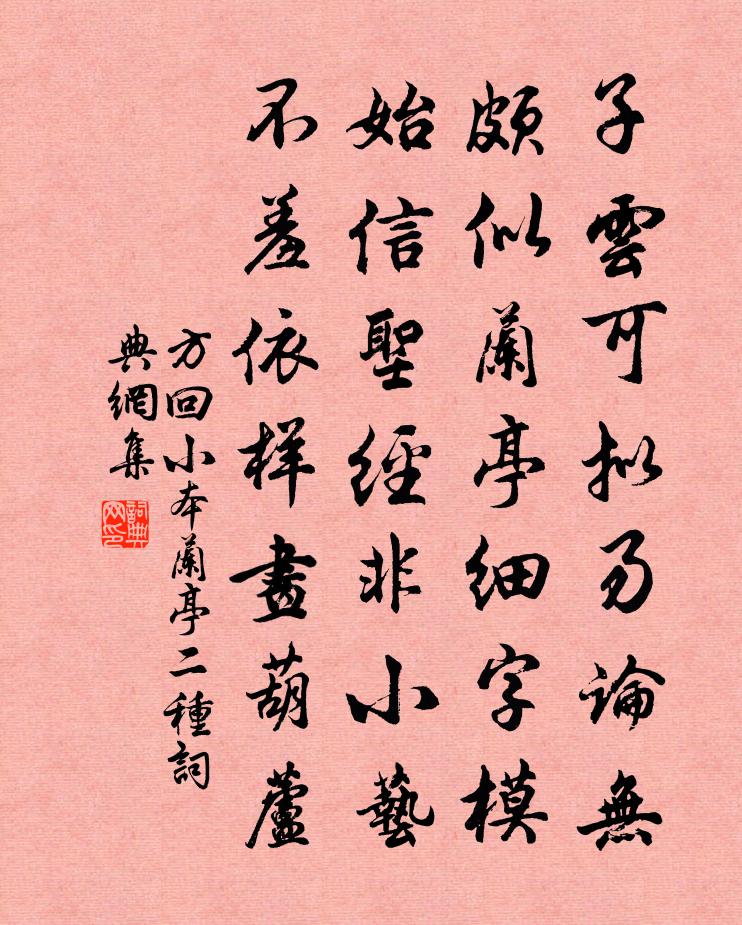 子雲可擬易論無
頗似蘭亭細字模
始信聖經非小藝
不羞依样畫葫蘆
方回小本蘭亭二種詞
典網集
詞典
网印